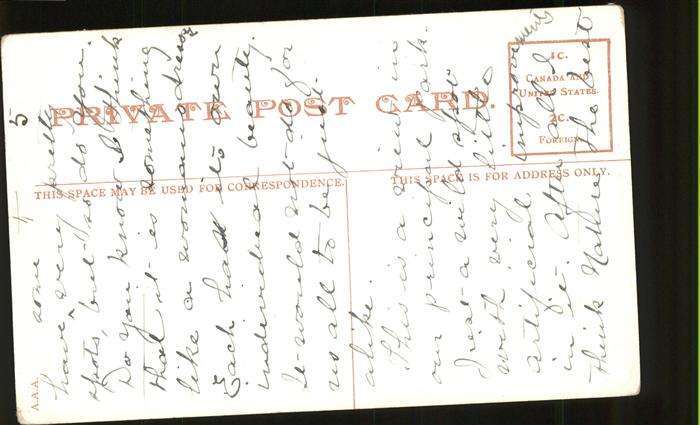 PRIVATE POST CARD.
1C.
CANADA AND
UNITED STATES.
2C.
FOREIGN.
THIS SPACE MAY BE USED FOR CORRESPONDENCE.
THIS SPACE IS FOR ADDRESS ONLY.
A.A.A.
5
some
have very well
spots, but so do you.
Do you know I think
that it is something
like a woman dress
Each has its own
individual beauty.
It would not do for
us all to be just
alike.
This is a view in
our principal park.
Just a wild spot
with very little
artificial improvements
in it. After all I
think Nature the best